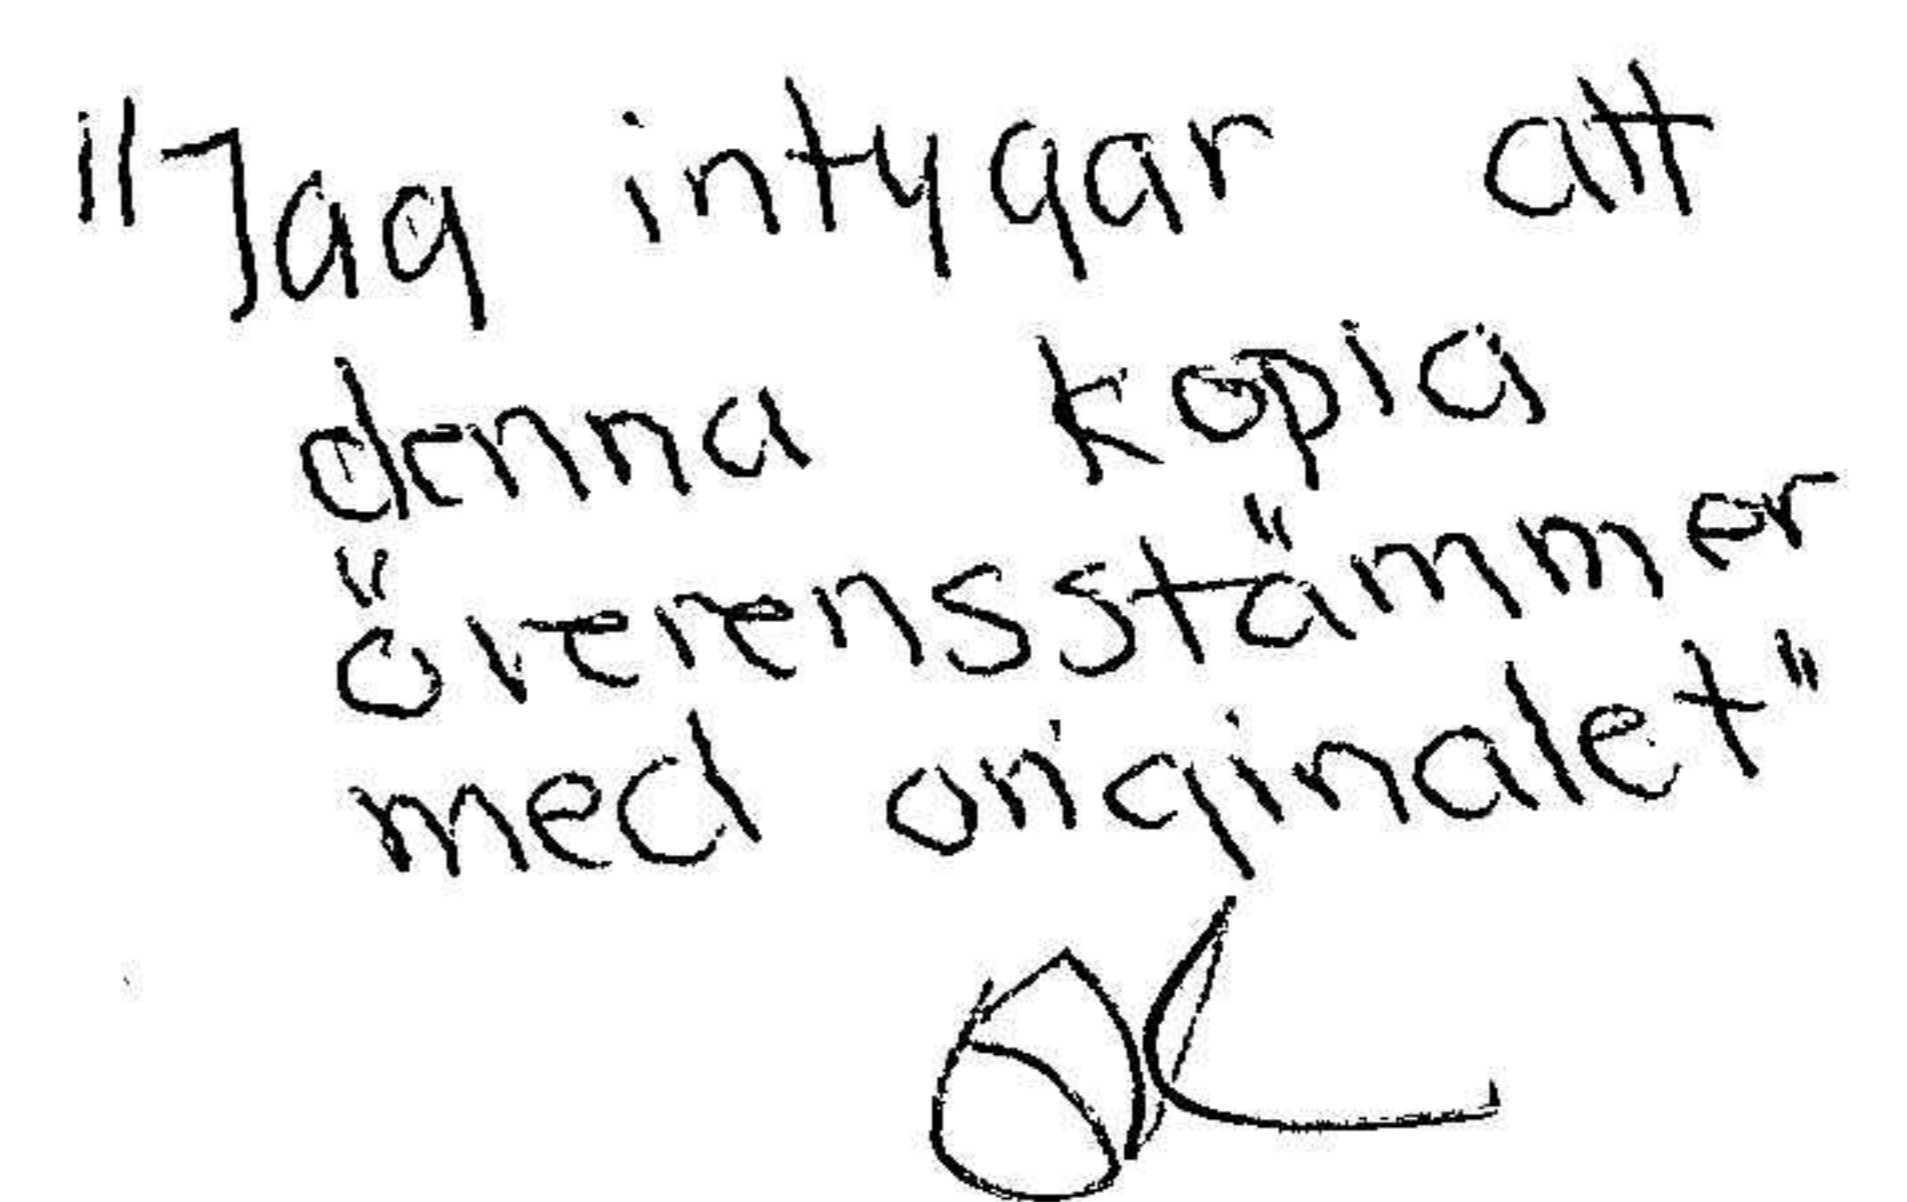 "Jag intygar att
denna kopia
överensstämmer
med originalet"